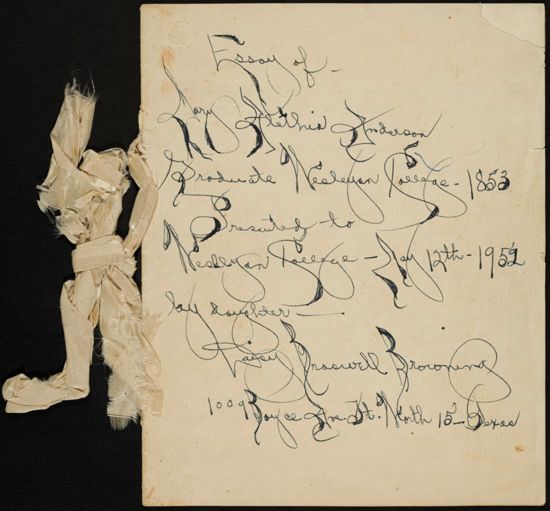 Essay of -
Mary Alethia Anderson
Graduate Wesleyan College - 1853
Presented to
Wesleyan College - May 12th - 1952
by daughter -
Daisy Braswell Browning
1009 Boyce Ave Ft. Worth 15 - Texas